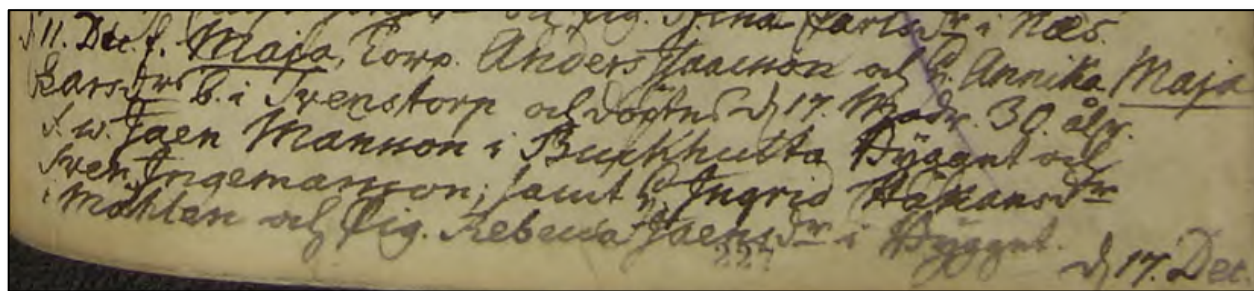 och Pig. Stina Carlsdr i Näs.
d 11. Dec. f. Maja, Corp. Anders Jsacsson och h. Annika Maja
Larsdrs b. i Svenstorp och döptes d 17. Modr. 30. åhr.
f. w. Jaen Månsson i Buskhutta Hÿggnt och
Sven Jngemarsson; samt h. Jngrid Håkansdr
i Möhlan och Pig. Rebecca Jaensdr i Hÿggnt.
227
d 17. Dec.